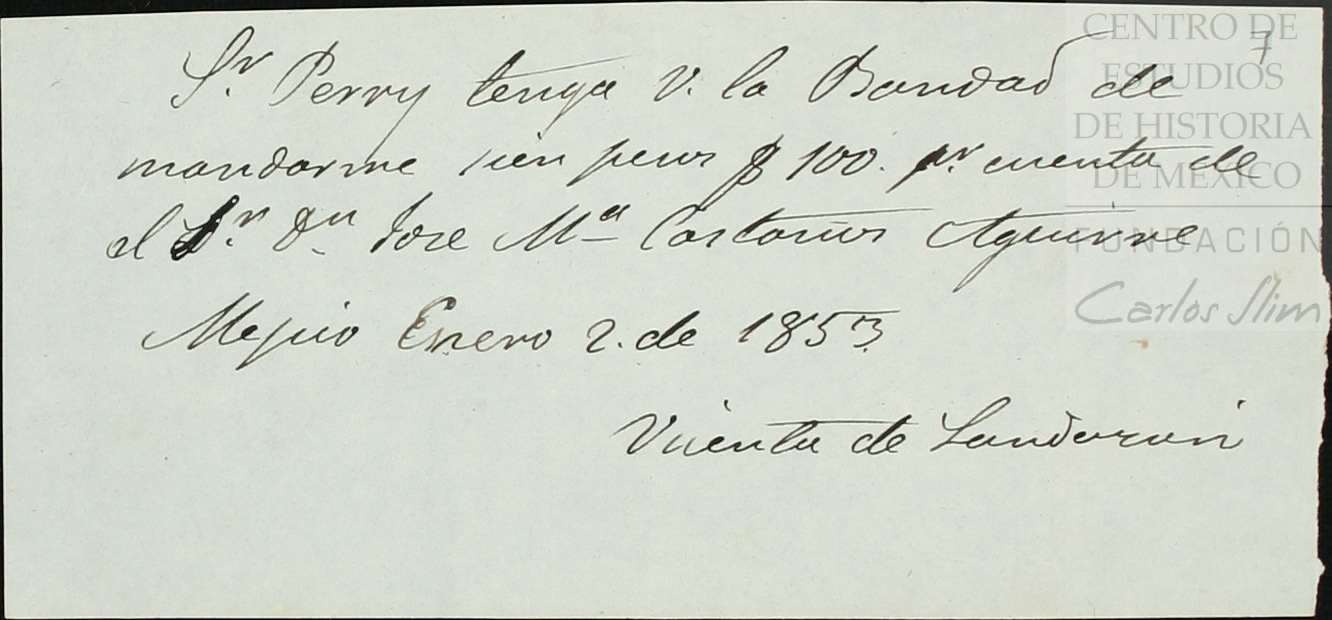 CENTRO DE
ESTUDIOS
DE HISTORIA
DE MEXICO
FUNDACIÓN
Carlos Slim
7
Sr. Perry tenga V. la Bondad de
mandarme sien pesos $ 100. pr. cuenta de
el Sr. Dn Jose Ma Castaños Aguirre
Mejico Enero 2. de 1853
Vicenta de